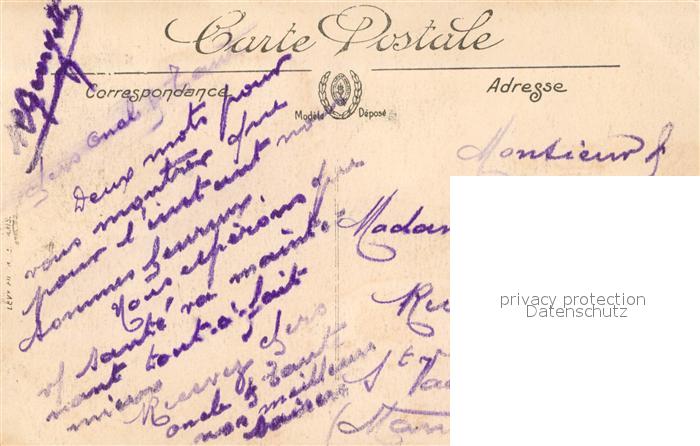 Carte Postale
Correspondance
Adresse
Modèle Déposé
LEVY
Chers oncle & Tante
Deux mots pour
vous montrer que
pour l'instant nous
sommes heureux
Nous espérons que
vf santé va mainte
nant tout-à-fait
mieux
Recevez Chers
oncle & Tante
nos meilleurs
baisers
Monsieur &
Madam
Rue
St Va
privacy protection
Datenschutz